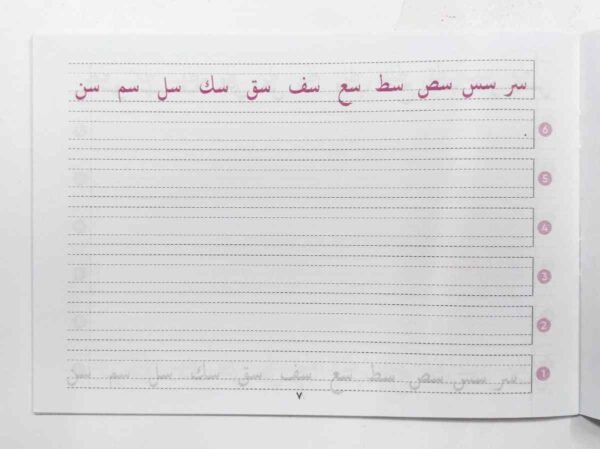 سر سس سص سط سع سف سق سك سل سم سن
6
5
4
3
2
1 سر سس سص سط سع سف سق سك سل سم سن
٧